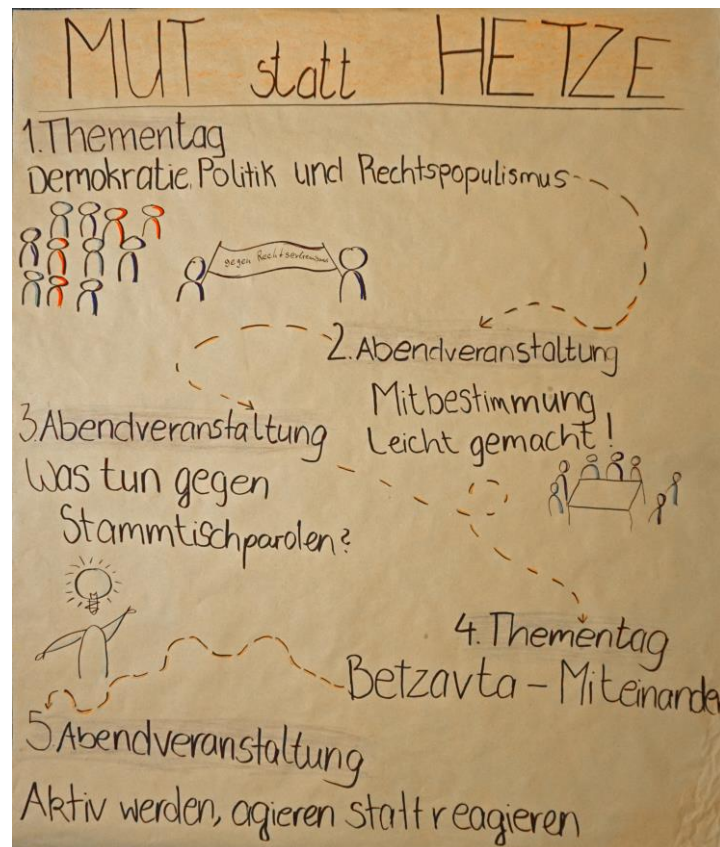 MUT statt HETZE
1. Thementag
Demokratie, Politik und Rechtspopulismus
gegen Rechtsextremismus
2. Abendveranstaltung
Mitbestimmung
Leicht gemacht!
3. Abendveranstaltung
Was tun gegen
Stammtischparolen?
4. Thementag
Betzavta – Miteinander
5. Abendveranstaltung
Aktiv werden, agieren statt reagieren